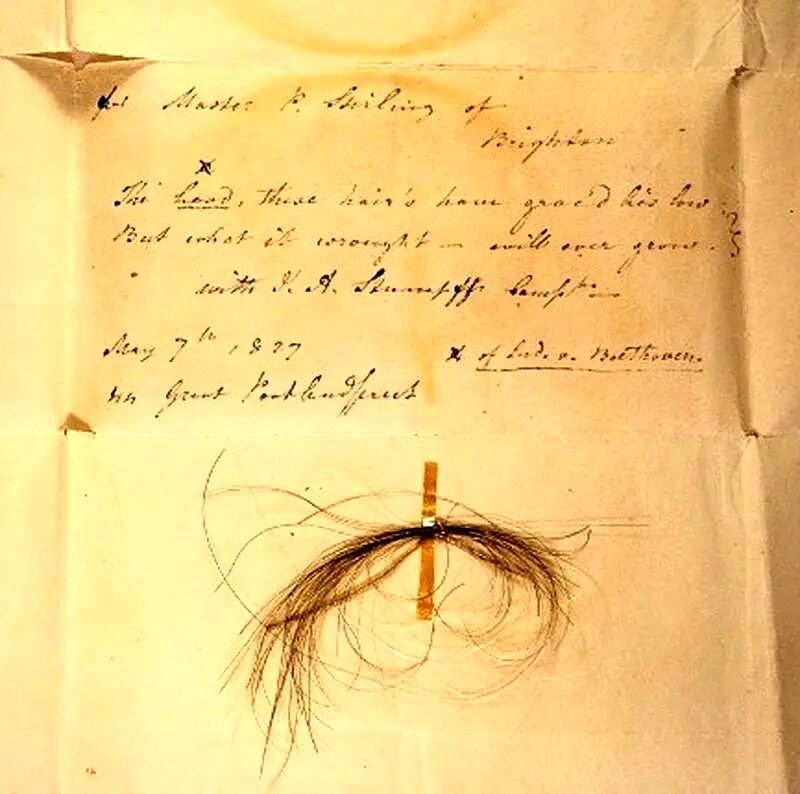 for Master P. Stirling of
Brighton
x
The head, these hair's have grac'd lies low
But what it wrought — will ever grow.
with J. A. Stumpff's Compts
May 7th 1827
44 Great Portland Street
x of Ludv. v. Beethoven.